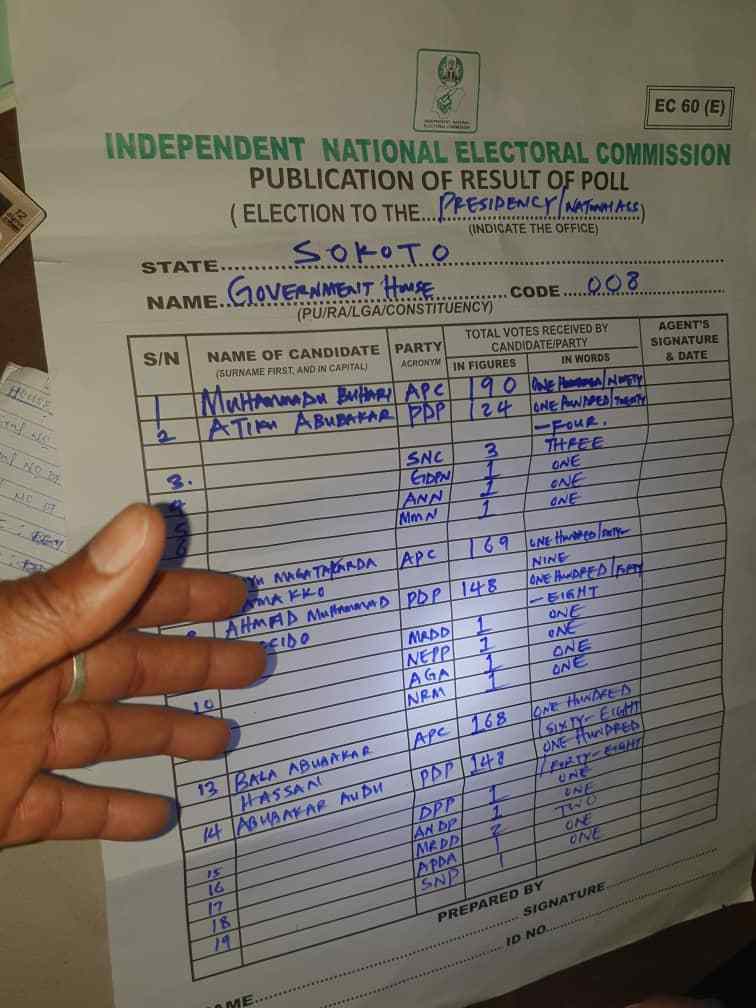 INDEPENDENT NATIONAL ELECTORAL COMMISSION
EC 60 (E)
INDEPENDENT NATIONAL ELECTORAL COMMISSION
PUBLICATION OF RESULT OF POLL
( ELECTION TO THE... PRESIDENCY/NATIONAL ASS)
(INDICATE THE OFFICE)
STATE... SOKOTO
NAME... GOVERNMENT HOUSE CODE... 008
(PU/RA/LGA/CONSTITUENCY)
S/N NAME OF CANDIDATE (SURNAME FIRST, AND IN CAPITAL) PARTY ACRONYM TOTAL VOTES RECEIVED BY CANDIDATE/PARTY IN FIGURES IN WORDS AGENT'S SIGNATURE & DATE
1 MUHAMMADU BUHARI APC 190 ONE HUNDRED/NINETY
2 ATIKU ABUBAKAR PDP 124 ONE HUNDRED/TWENTY
—FOUR.
3. SNC 3 THREE
4 GDPN 1 ONE
5 ANN 1 ONE
6 MMN 1 ONE
MAGATAKARDA APC 169 ONE HUNDRED/SIXTY-
AMAKKO NINE
AHMAD MUHAMMAD PDP 148 ONE HUNDRED/FIFTY
CIDO —EIGHT
MRDD 1 ONE
10 NEPP 1 ONE
AGA 1 ONE
NRM 1 ONE
13 BALA ABUBAKAR APC 168 ONE HUNDRED
HASSAN /SIXTY-EIGHT
14 ABUBAKAR AUDU PDP 148 ONE HUNDRED
/FORTY-EIGHT
15 DPP 1 ONE
16 ANDP 1 ONE
17 MRDD 2 TWO
18 APDA 1 ONE
19 SNP 1 ONE
PREPARED BY
NAME... SIGNATURE...
ID NO...